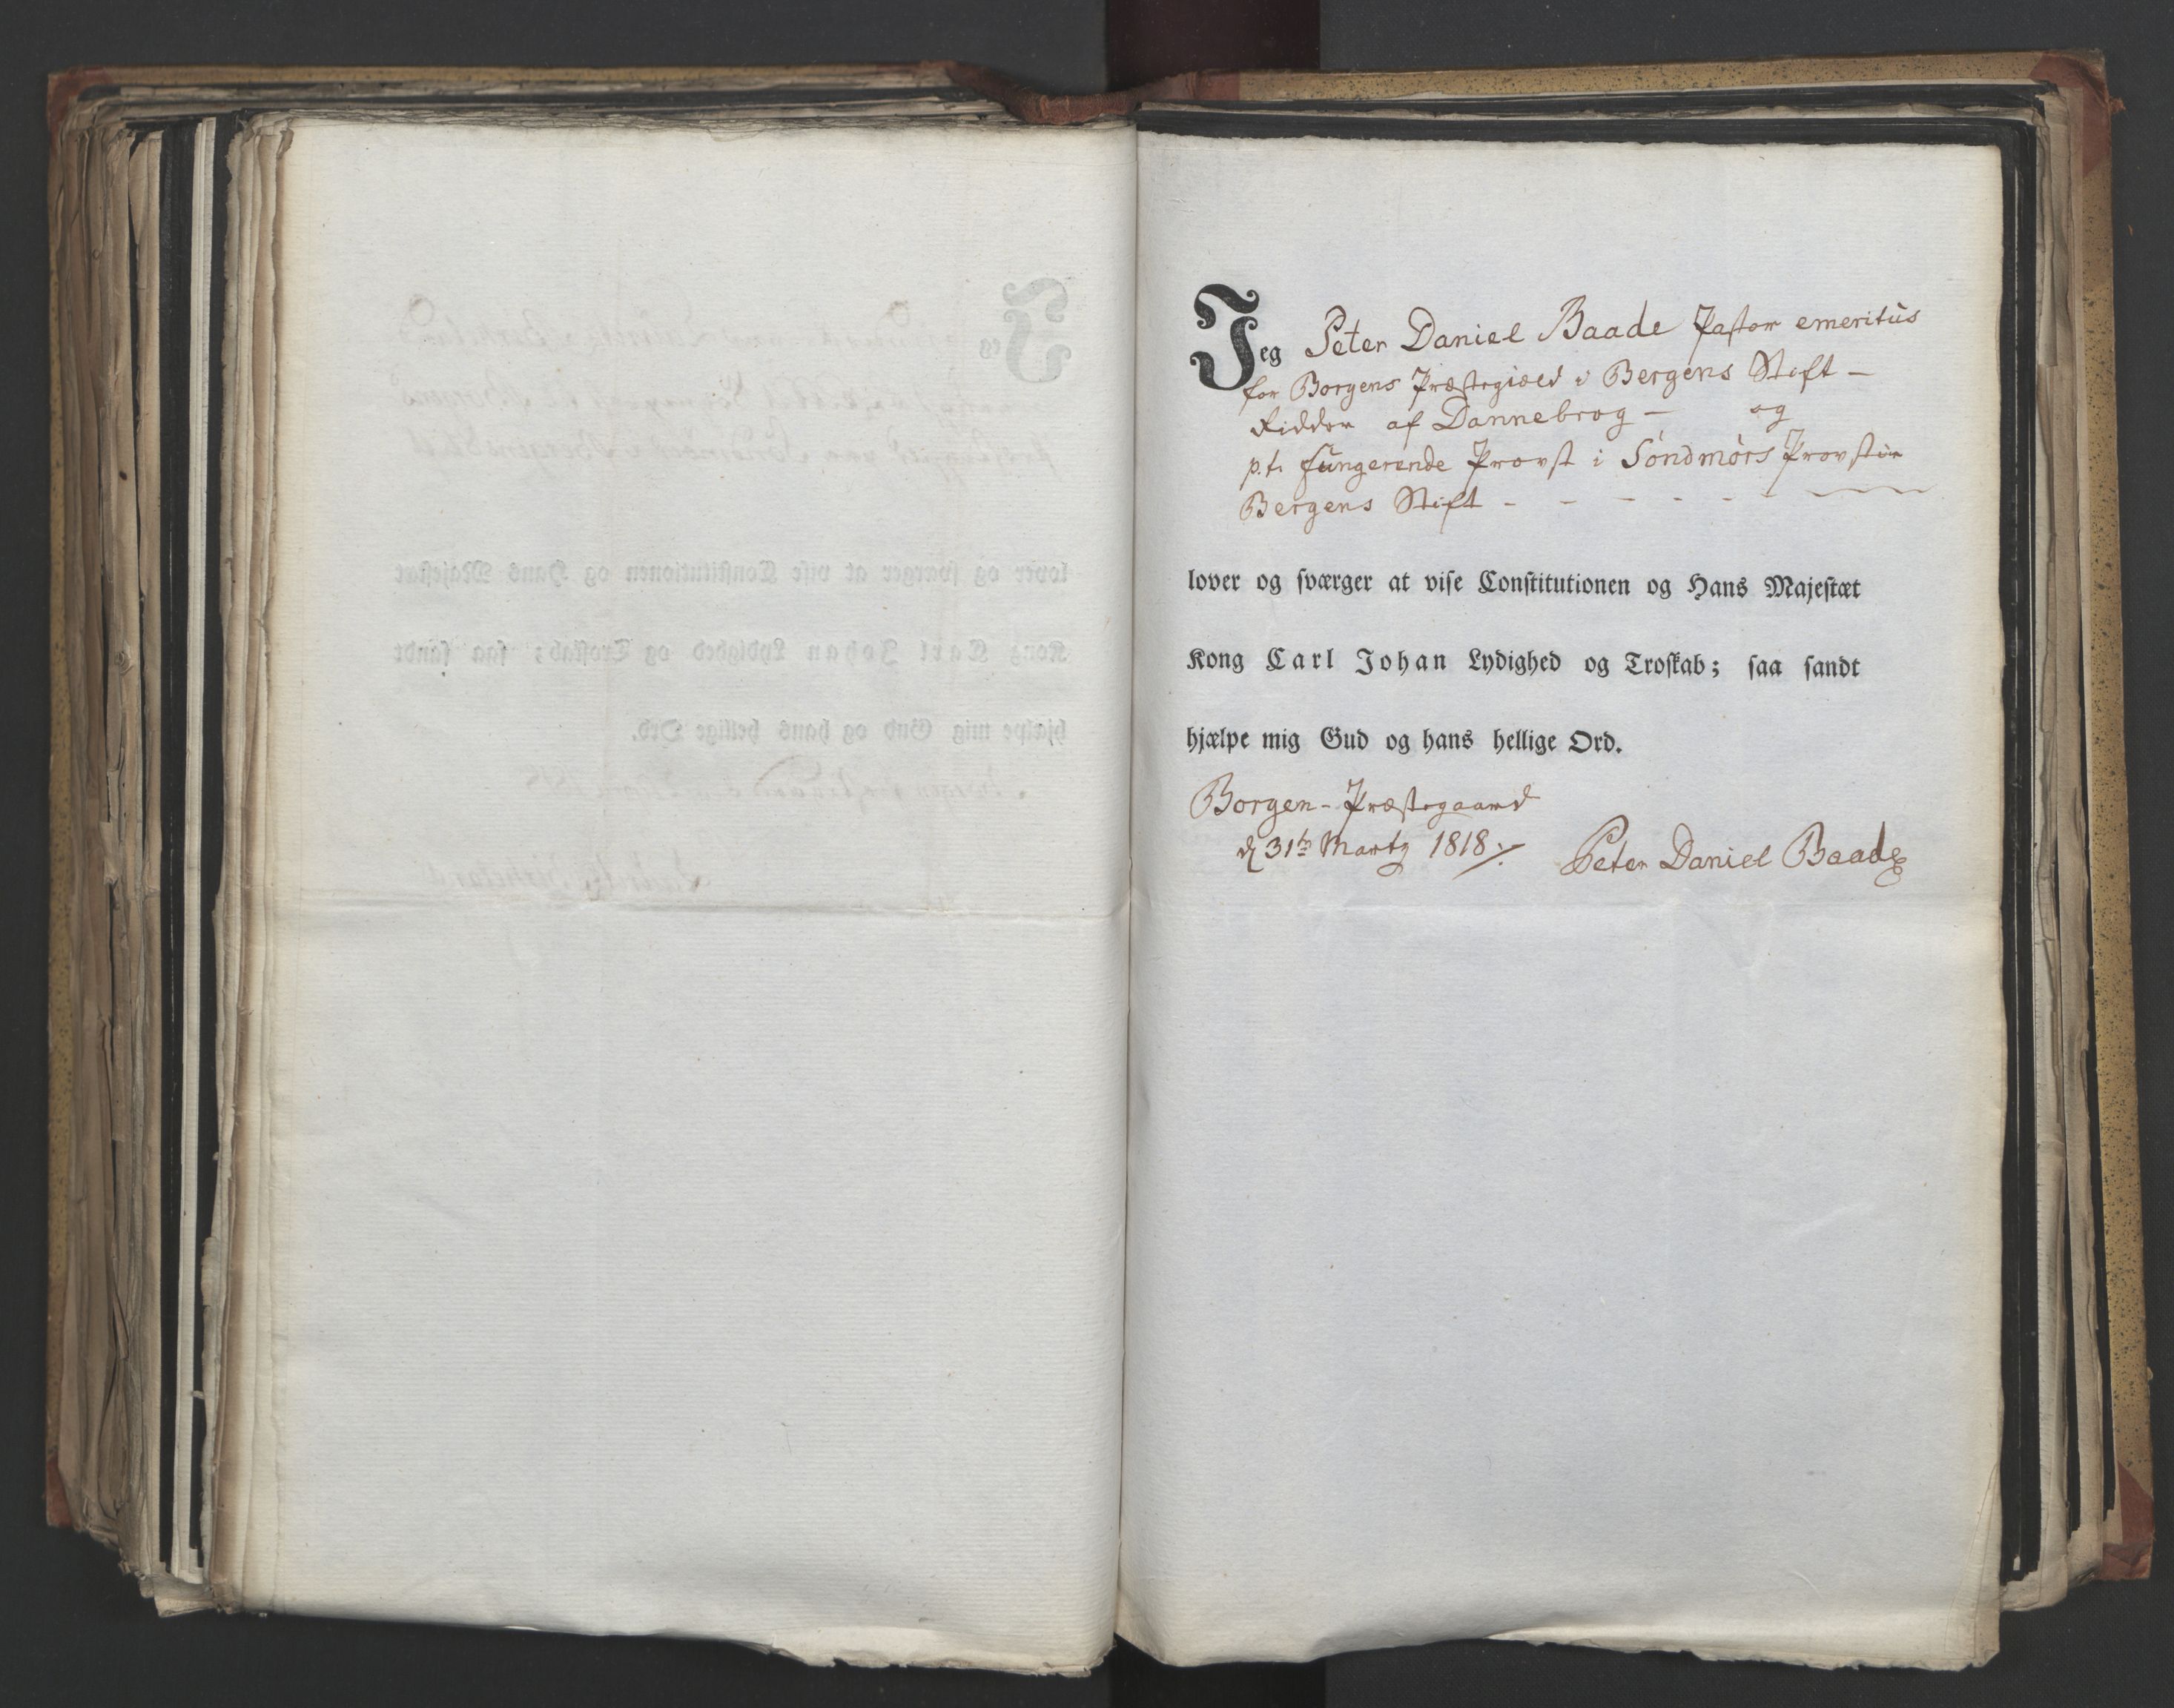 Jeg Peter Daniel Baade Pastor emeritus
for Borgens Præstegiæld i Bergens Stift —
Ridder af Dannebrog — og
p.t. fungerende Provst i Söndmörs Provstie
Bergens Stift - - - - - -
lover og sværger at vise Constitutionen og Hans Majestæt
Kong Carl Johan Lydighed og Troskab; saa sandt
hjælpe mig Gud og hans hellige Ord.
Borgen-Præstegaard
d 31te Marty 1818
Peter Daniel Baade